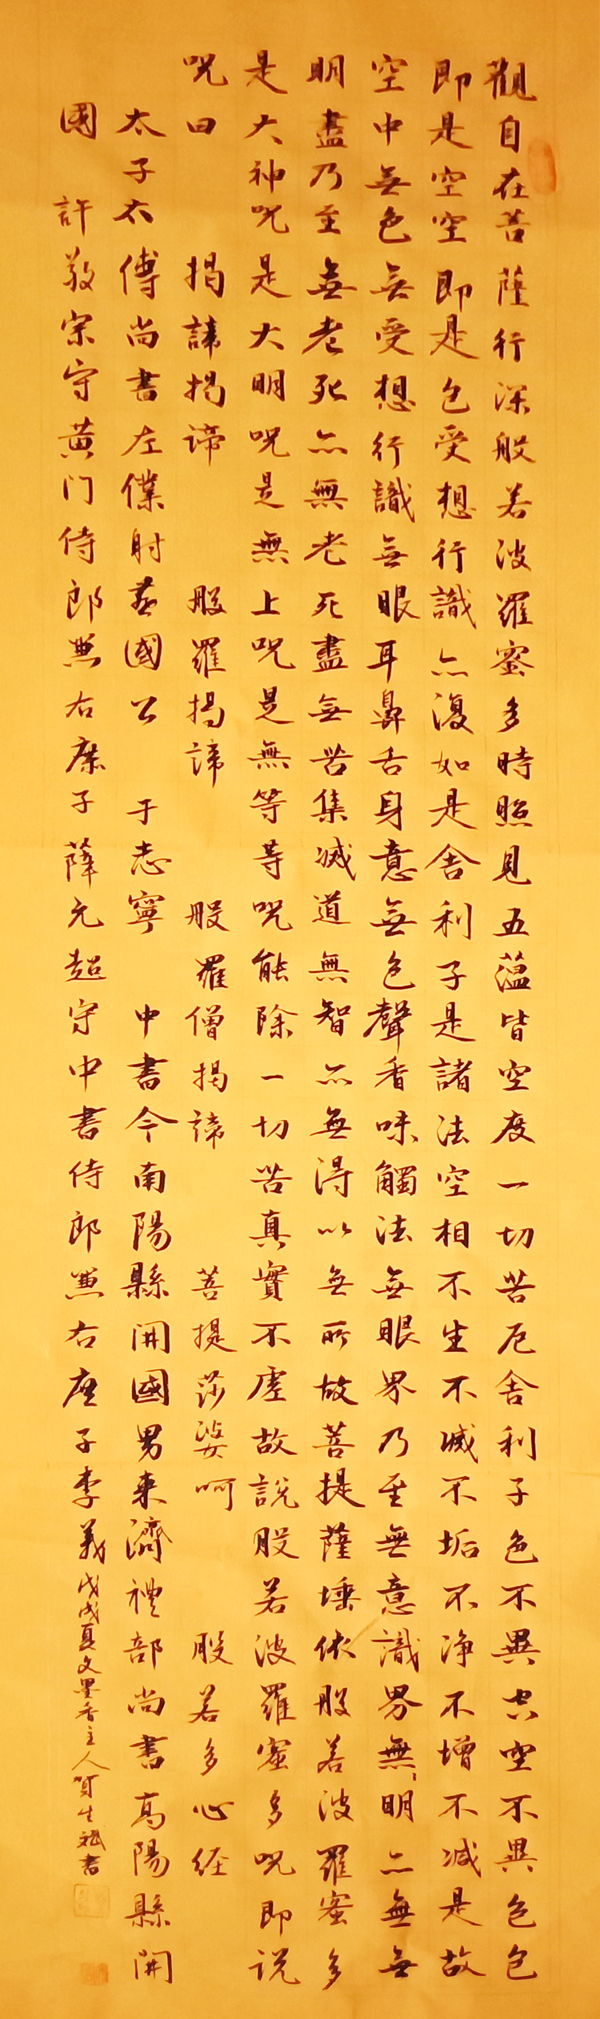 觀自在菩薩行深般若波羅蜜多時照見五蘊皆空度一切苦厄舍利子色不異空空不異色色
即是空空即是色受想行識亦復如是舍利子是諸法空相不生不滅不垢不净不增不减是故
空中無色無受想行識無眼耳鼻舌身意無色聲香味觸法無眼界乃至無意識界無明亦無無
明盡乃至無老死亦無老死盡無苦集滅道無智亦無得以無所故菩提薩埵依般若波羅蜜多
是大神咒是大明咒是無上咒是無等等咒能除一切苦真實不虛故說般若波羅蜜多咒即説
咒曰 揭諦揭諦 般羅揭諦 般羅僧揭諦 菩提莎婆呵 般若多心经
太子太傅尚書左僕射燕國公 于志寧 中書令南陽縣開國男来濟禮部尚書高陽縣開
國 許敬宗守黄门侍郎兼右庶子薛元超守中書侍郎兼右庶子李義 戊戌夏文墨香主人 生 書